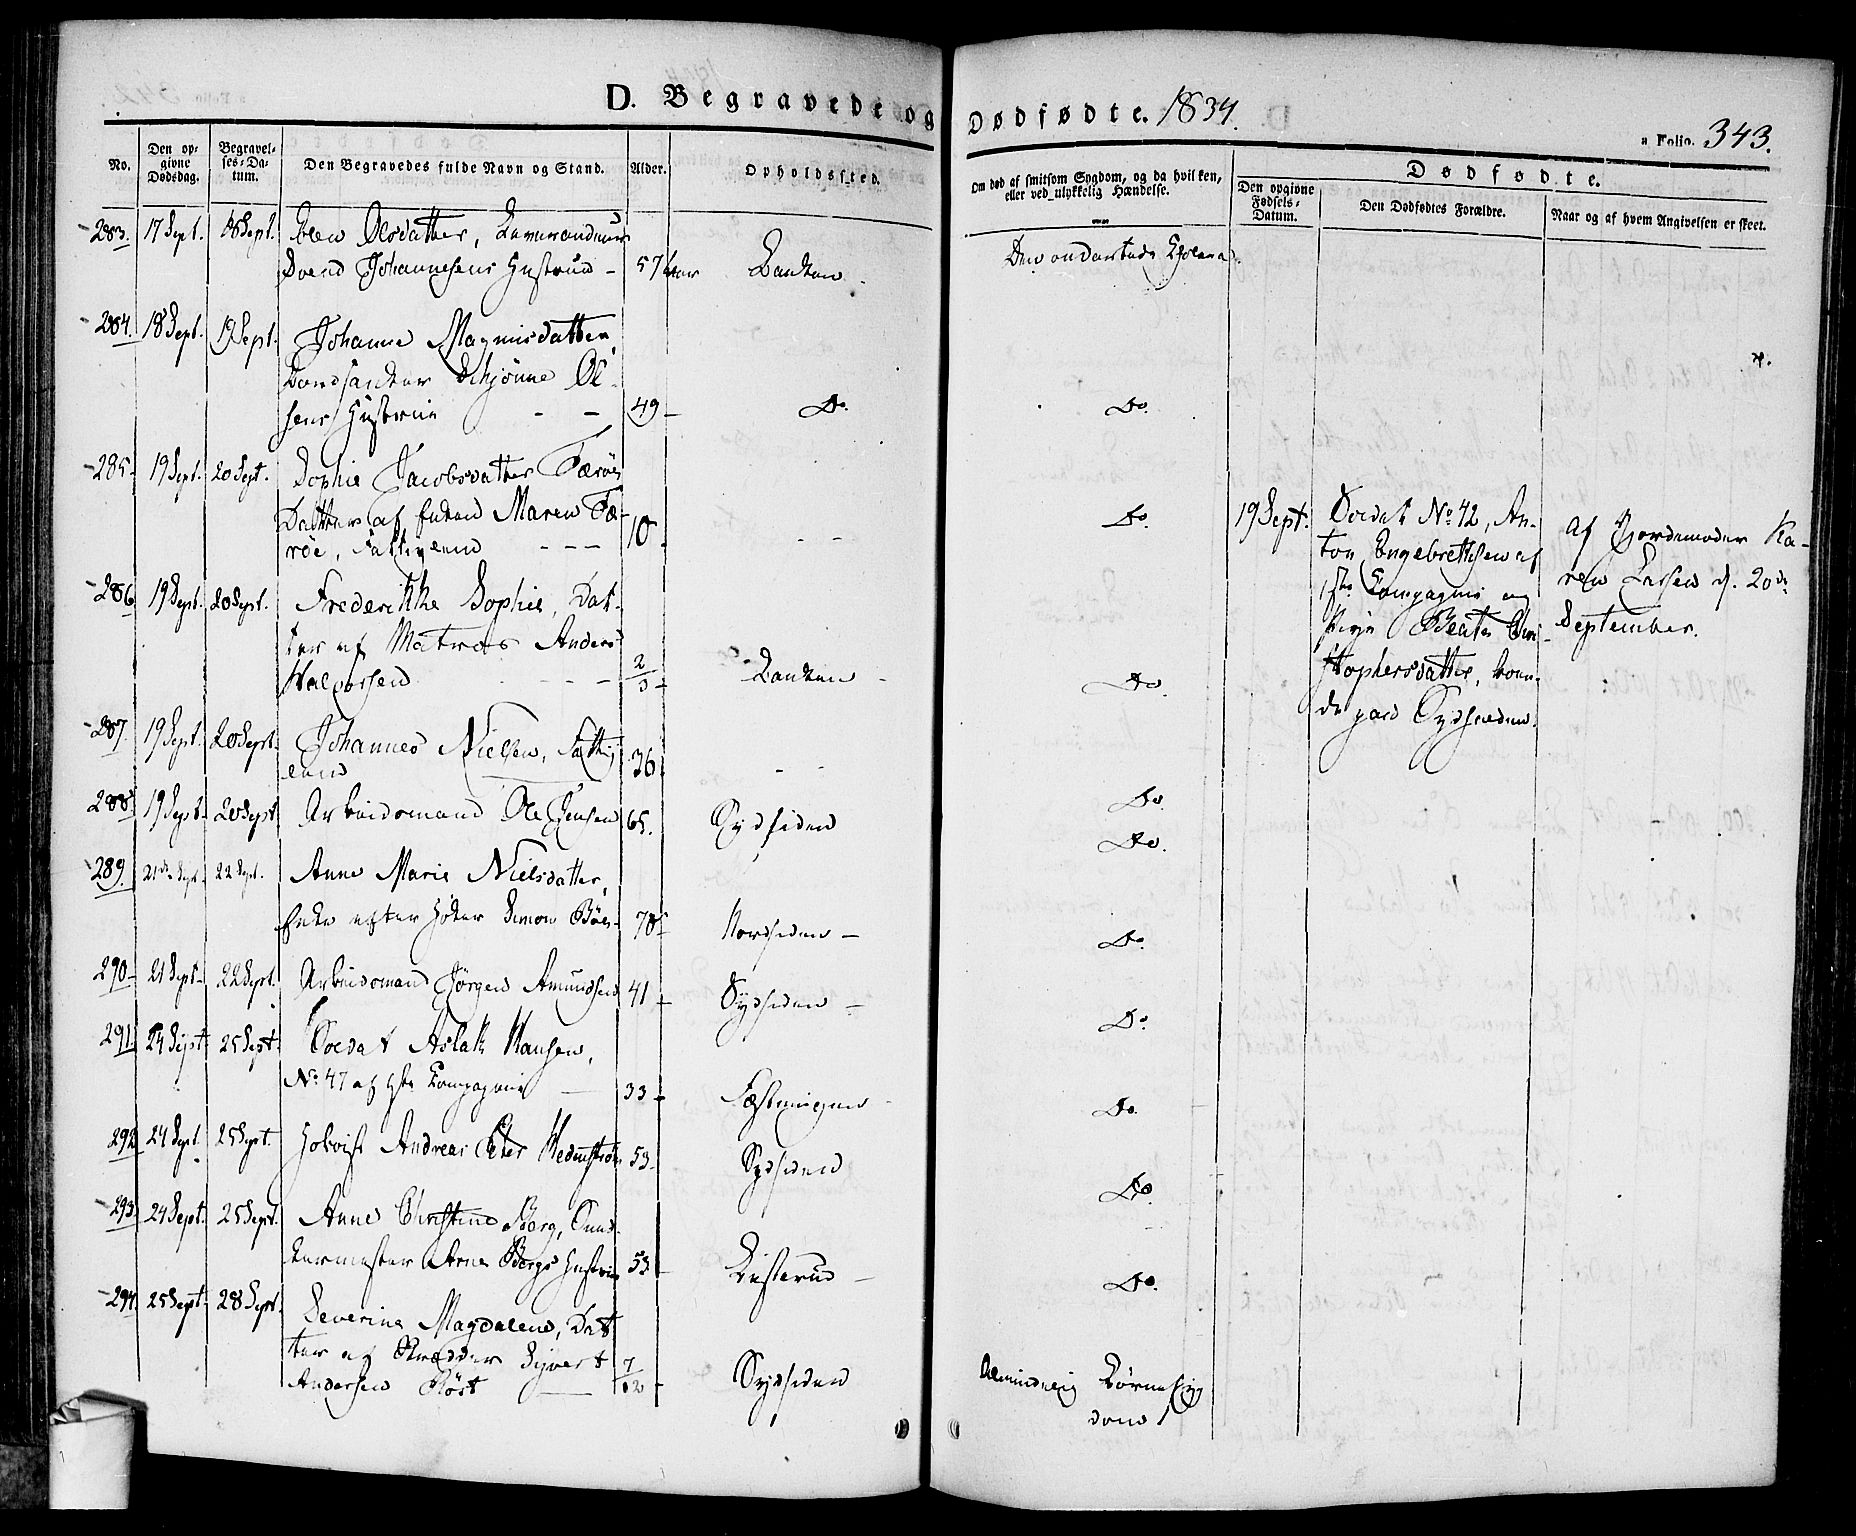 D. Begravede og Dødfødte. 1834.
a Folio. 343.
No.
Den opgivne Dødsdag.
Begravelses-Datum.
Den Begravedes fulde Navn og Stand.
Alder.
Opholdssted.
Om død af smitsom Sygdom, og da hvilken,
eller ved ulykkelig Hændelse.
Dødfødte.
Den opgivne Fødsels-Datum.
Den Dødfødtes Forældre.
Naar og af hvem Angivelsen er skeet.
283. 17 Sept. 18 Sept. Olsdatter,
Svend Johannesens Hustrue - 57 Aar Banken
Den ondartede Cholera.
284. 18 Sept. 19 Sept. Johanne Magnusdatter,
Ol-
sens Hustrue - - 49 - Do.
Do.
285. 19 Sept. 20 Sept. Sophie Jacobsdatter Færöe
Datter af Enken Maren Fæ-
röe, Fattiglem - - - 10. - -
Do.
286. 19 Sept. 20 Sept. Frederikke Sophie, Dat-
ter af Matros Anders
Halvorsen - - - 2/3 - Banken -
Do.
287. 19 Sept. 20 Sept. Johannes Nielsen, Fattig-
lem 36. - -
Do.
288. 19 Sept. 20 Sept. Arbeidsmand Ole Jensen 65. Sydsiden
Do.
289. 21de Sept. 22 Sept. Anne Marie Nielsdatter,
Enke efter Simon 78 Nordsiden -
Do.
290. 21 Sept. 22 Sept. Arbeidsmand Jörgen Amundsen 41 - Sydsiden -
Do.
291. 24 Sept. 25 Sept. Soldat Aslak Hansen,
No. 47 af Compagnie - 33 - Fæstningen -
Do.
292. 24 Sept. 25 Sept. Andreas Peter 53. Sydsiden
Do.
293. 24 Sept. 25 Sept. Anne Christine Berg,
Arne Bergs Hustrue 53 - Risterud -
Do.
294. 25 Sept. 28 Sept. Severine Magdalene, Dat-
ter af Skrædder Syvert
Andersen - 7/12 - Sydsiden
Almindelig Börnesyg-
dom
19 Sept. Soldat No. 42, An-
ton Engebrethsen af
1ste Compagnie og
Pige Beate Chri-
stophersdatter, boen-
de paa Sydsiden.
Af Jordemoder Ka-
ren Larsen d. 20de
September.